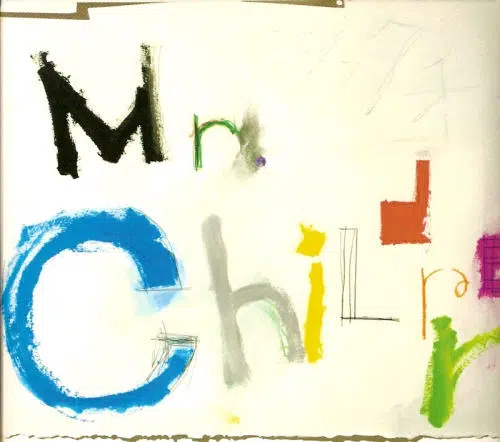 Mr.
ChiLdr